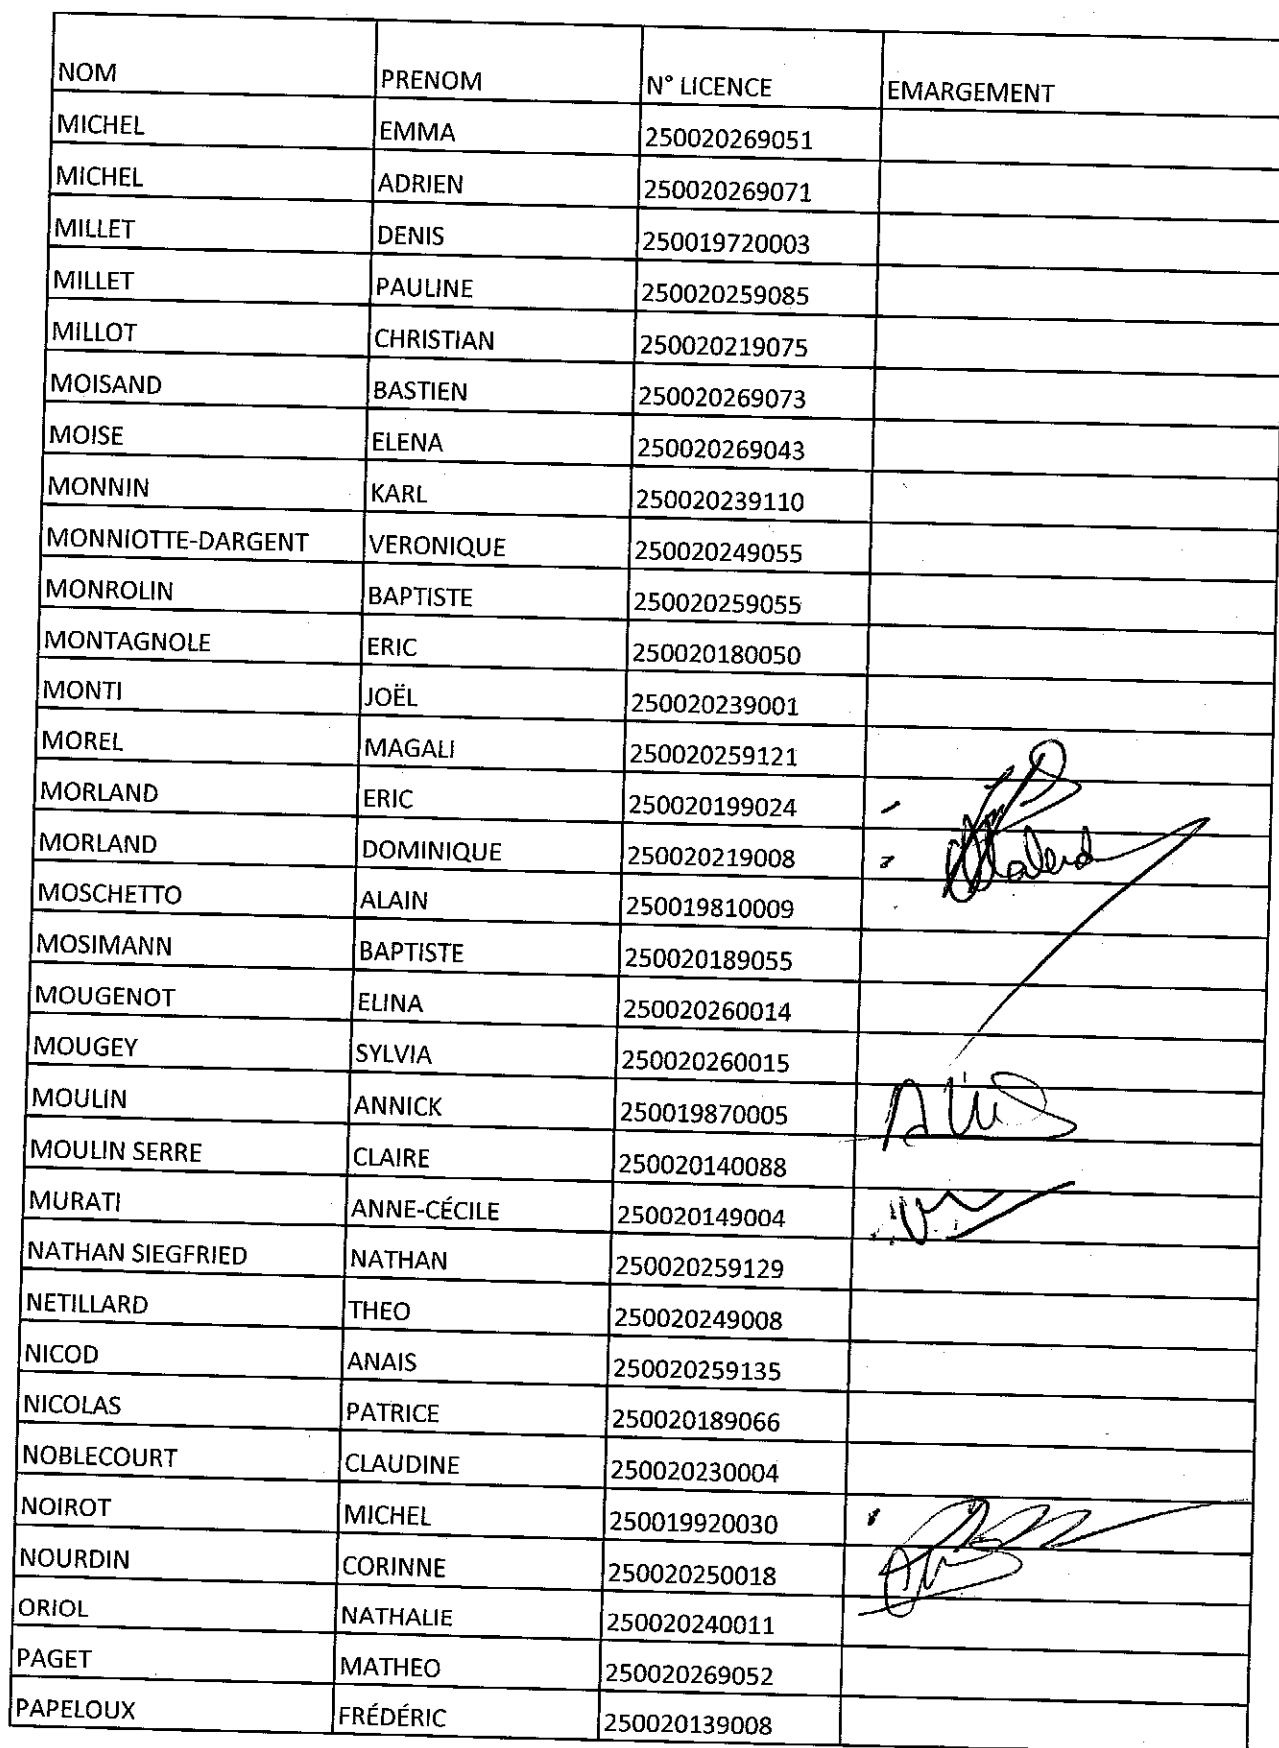 NOM PRENOM N° LICENCE EMARGEMENT
MICHEL EMMA 250020269051
MICHEL ADRIEN 250020269071
MILLET DENIS 250019720003
MILLET PAULINE 250020259085
MILLOT CHRISTIAN 250020219075
MOISAND BASTIEN 250020269073
MOISE ELENA 250020269043
MONNIN KARL 250020239110
MONNIOTTE-DARGENT VERONIQUE 250020249055
MONROLIN BAPTISTE 250020259055
MONTAGNOLE ERIC 250020180050
MONTI JOËL 250020239001
MOREL MAGALI 250020259121
MORLAND ERIC 250020199024
MORLAND DOMINIQUE 250020219008
MOSCHETTO ALAIN 250019810009
MOSIMANN BAPTISTE 250020189055
MOUGENOT ELINA 250020260014
MOUGEY SYLVIA 250020260015
MOULIN ANNICK 250019870005
MOULIN SERRE CLAIRE 250020140088
MURATI ANNE-CÉCILE 250020149004
NATHAN SIEGFRIED NATHAN 250020259129
NETILLARD THEO 250020249008
NICOD ANAIS 250020259135
NICOLAS PATRICE 250020189066
NOBLECOURT CLAUDINE 250020230004
NOIROT MICHEL 250019920030
NOURDIN CORINNE 250020250018
ORIOL NATHALIE 250020240011
PAGET MATHEO 250020269052
PAPELOUX FRÉDÉRIC 250020139008